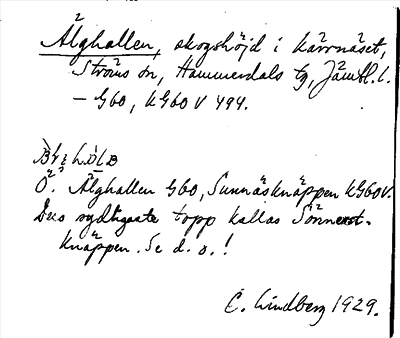 Älghallen, skogshöjd i Kärrnäset,
Ströms sn, Hammerdals tg, Jämtl. l.
— G60, KG60V 494.
Ö. Älghallen G60, Sunnäsknäppen KG60V.
Dess sydligaste topp kallas Sönnerst-
knäppen. Se d. o.!
C. Lindberg 1929.